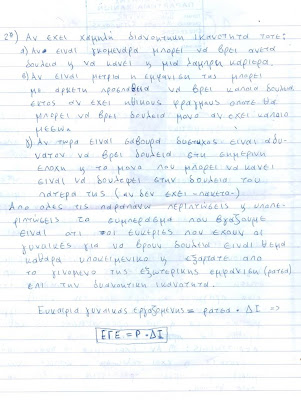 2α) Αν έχει χαμηλή διανοητική ικανότητα τότε:
α) Αν είναι γκομενάρα μπορεί να βρει άνετα
δουλειά ή να κάνει μια λαμπρή καριέρα.
β) Αν είναι μέτρια η εμφάνιση της μπορεί
με αρκετή προσπάθεια να βρει κάποια δουλειά
εκτός αν έχει ηθικους φραγμους οποτε θα
μπορεί να βρει δουλειά μονο αν έχει καποιο
μέσων.
γ) Αν τώρα είναι σαβουρα δυστυχος είναι αδυ-
νατον να βρει δουλεια στη σημερινη
εποχη η το μονο που μπορει να κανει
ειναι να δουλεψει στην δουλεια του
πατερα της (αν δεν εχει «παχετα»)
Απο ολες τις παραπανω περιπτωσεις η υποπε-
ριπτωσεις το συμπερασμα που βγαζουμε
ειναι οτι οι ευκεριες που εχουν οι
γυναικες για να βρουν δουλεια ειναι θεμα
καθαρα υποκειμενικο η εξαρτατε απο
το γινομενο της εξωτερικης εμφανισης (ρατσα)
επι την διανοητικη ικανοτητα.
Ευκαιρια γυναικας εργαζομενης = ρατσα · ΔΙ =>
ΕΓΕ = Ρ · ΔΙ